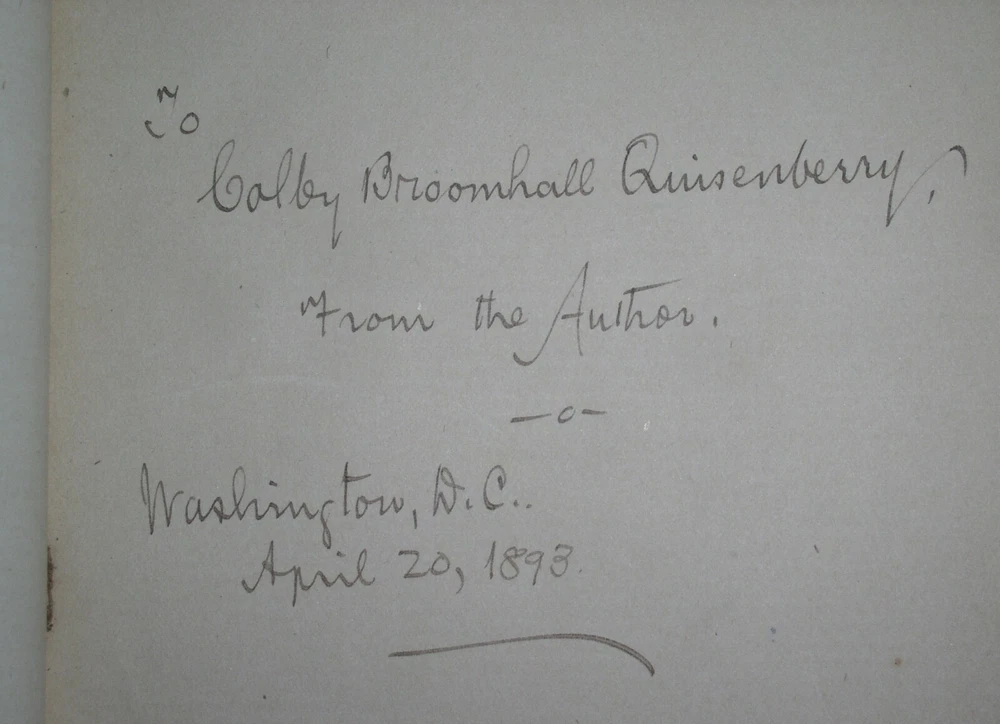 To
Colby Broomhall Quisenberry,
From the Author.
—o—
Washington, D.C..
April 20, 1893.